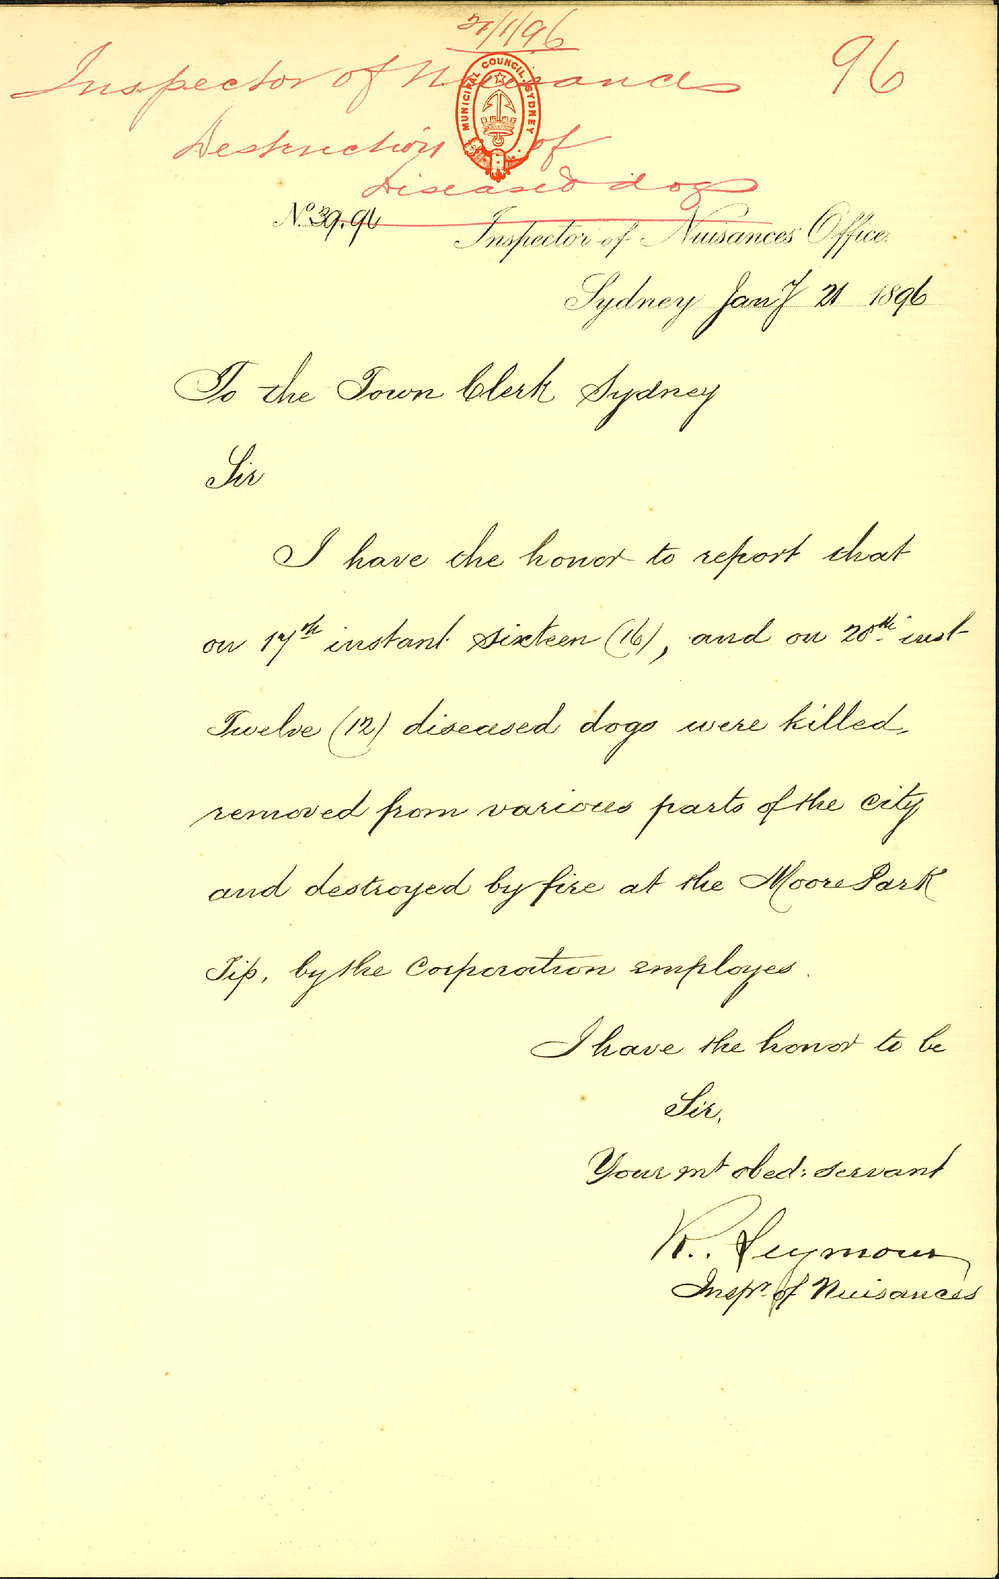 21/1/96
Inspector of Nuisances 96
MUNICIPAL COUNCIL SYDNEY
Destruction of
Diseased dogs
No. 39.96 Inspector of Nuisances Office.
Sydney Jany 21 1896
To the Town Clerk Sydney
Sir
I have the honor to report that
on 17th instant sixteen (16), and on 20th inst
Twelve (12) diseased dogs were killed,
removed from various parts of the city
and destroyed by fire at the Moore Park
Tip, by the Corporation employes.
I have the honor to be
Sir,
Your mt obed: servant
R. Seymour
Inspr. of Nuisances